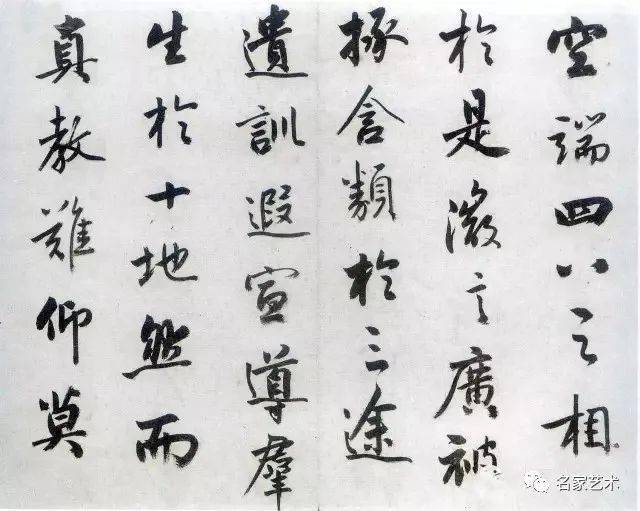 空端四八之相
於是微言廣被
拯含類於三途
遺訓遐宣導羣
生於十地然而
真教難仰莫
名家艺术